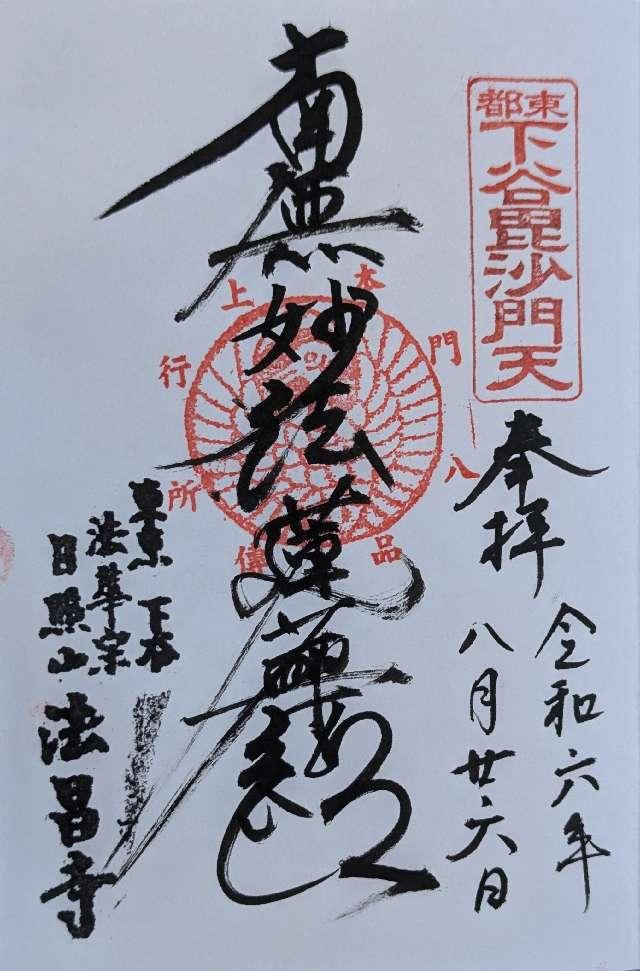 東都
下谷毘沙門天
奉拝
令和六年
八月廿六日
南無妙法蓮華経
本門八品
上行所傳
東京下谷
法華宗
日照山
法昌寺